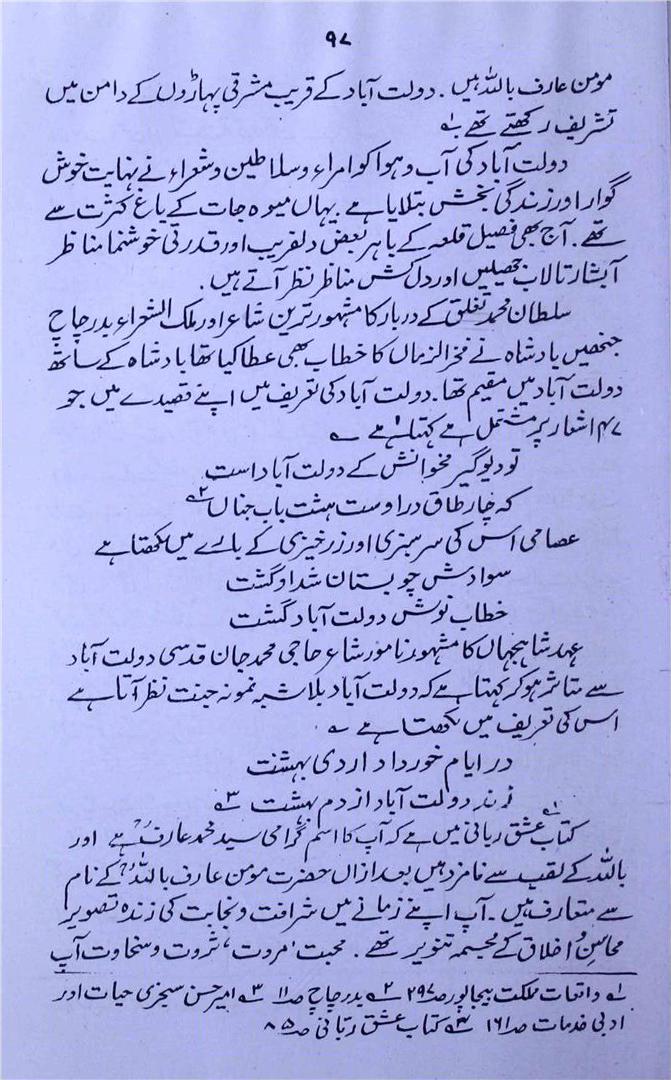 ۹۷
مومن عارف باللہ ہیں۔ دولت آباد کے قریب مشرقی پہاڑوں کے دامن میں
تشریف رکھتے تھے ؎۱
دولت آباد کی آب وہوا کو امراء وسلاطین وشعراء نے نہایت خوش
گوار اور زندگی بخش بتلایا ہے یہاں میوہ جات کے باغ کثرت سے
تھے۔ آج بھی فصیل قلعہ کے باہر بعض دلفریب اور قدرتی خوشنما مناظر
آبشار تالاب جھیلیں اور دل کش مناظر نظر آتے ہیں۔
سلطان محمد تغلق کے دربار کا مشہور ترین شاعر اور ملک الشعراء بدر چاچ
جنھیں بادشاہ نے فخر الزماں کا خطاب بھی عطا کیا تھا بادشاہ کے ساتھ
دولت آباد میں مقیم تھا۔ دولت آباد کی تعریف میں اپنے قصیدے میں جو
۴۷ اشعار پر مشتمل ہے کہتا ہے ؎
تو دیوگیر مخوانش کے دولت آباد است
کہ چار طاق در اوست ہشت باب جناں ؎۲
عصامی اس کی سرسبزی اور زرخیزی کے بارے میں لکھتا ہے
سوادش چو بستان شداد گشت
خطاب نوش دولت آباد گشت
عہد شاہجہاں کا مشہور نامور شاعر حاجی محمد جان قدسی دولت آباد
سے متاثر ہو کر کہتا ہے کہ دولت آباد بلاشبہ نمونہ جنت نظر آتا ہے
اس کی تعریف میں لکھتا ہے ؎
در ایام خورداد اردی بہشت
زند دولت آباد از دم بہشت ؎۳
کتاب عشق ربانی میں ہے کہ آپ کا اسم گرامی سید محمد عارفؒ ہے اور
باللہ کے لقب سے نامزد ہیں بعد ازاں حضرت مومن عارف باللہؒ کے نام
سے متعارف ہیں۔ آپ اپنے زمانے میں شرافت ونجابت کی زندہ تصویر
محاسن و اخلاق کے مجسمہ تنویر تھے۔ محبت مروت، ثروت وسخاوت آپ
؎۱ واقعات مملکت بیجاپور صہ ۲۹۷ ؎۲ بدر چاچ صہ ۱۱ ؎۳ امیر حسن سجزی حیات اور
ادبی خدمات صہ ۱۶۱ ؎۴ کتاب عشق ربانی صہ ۸۵